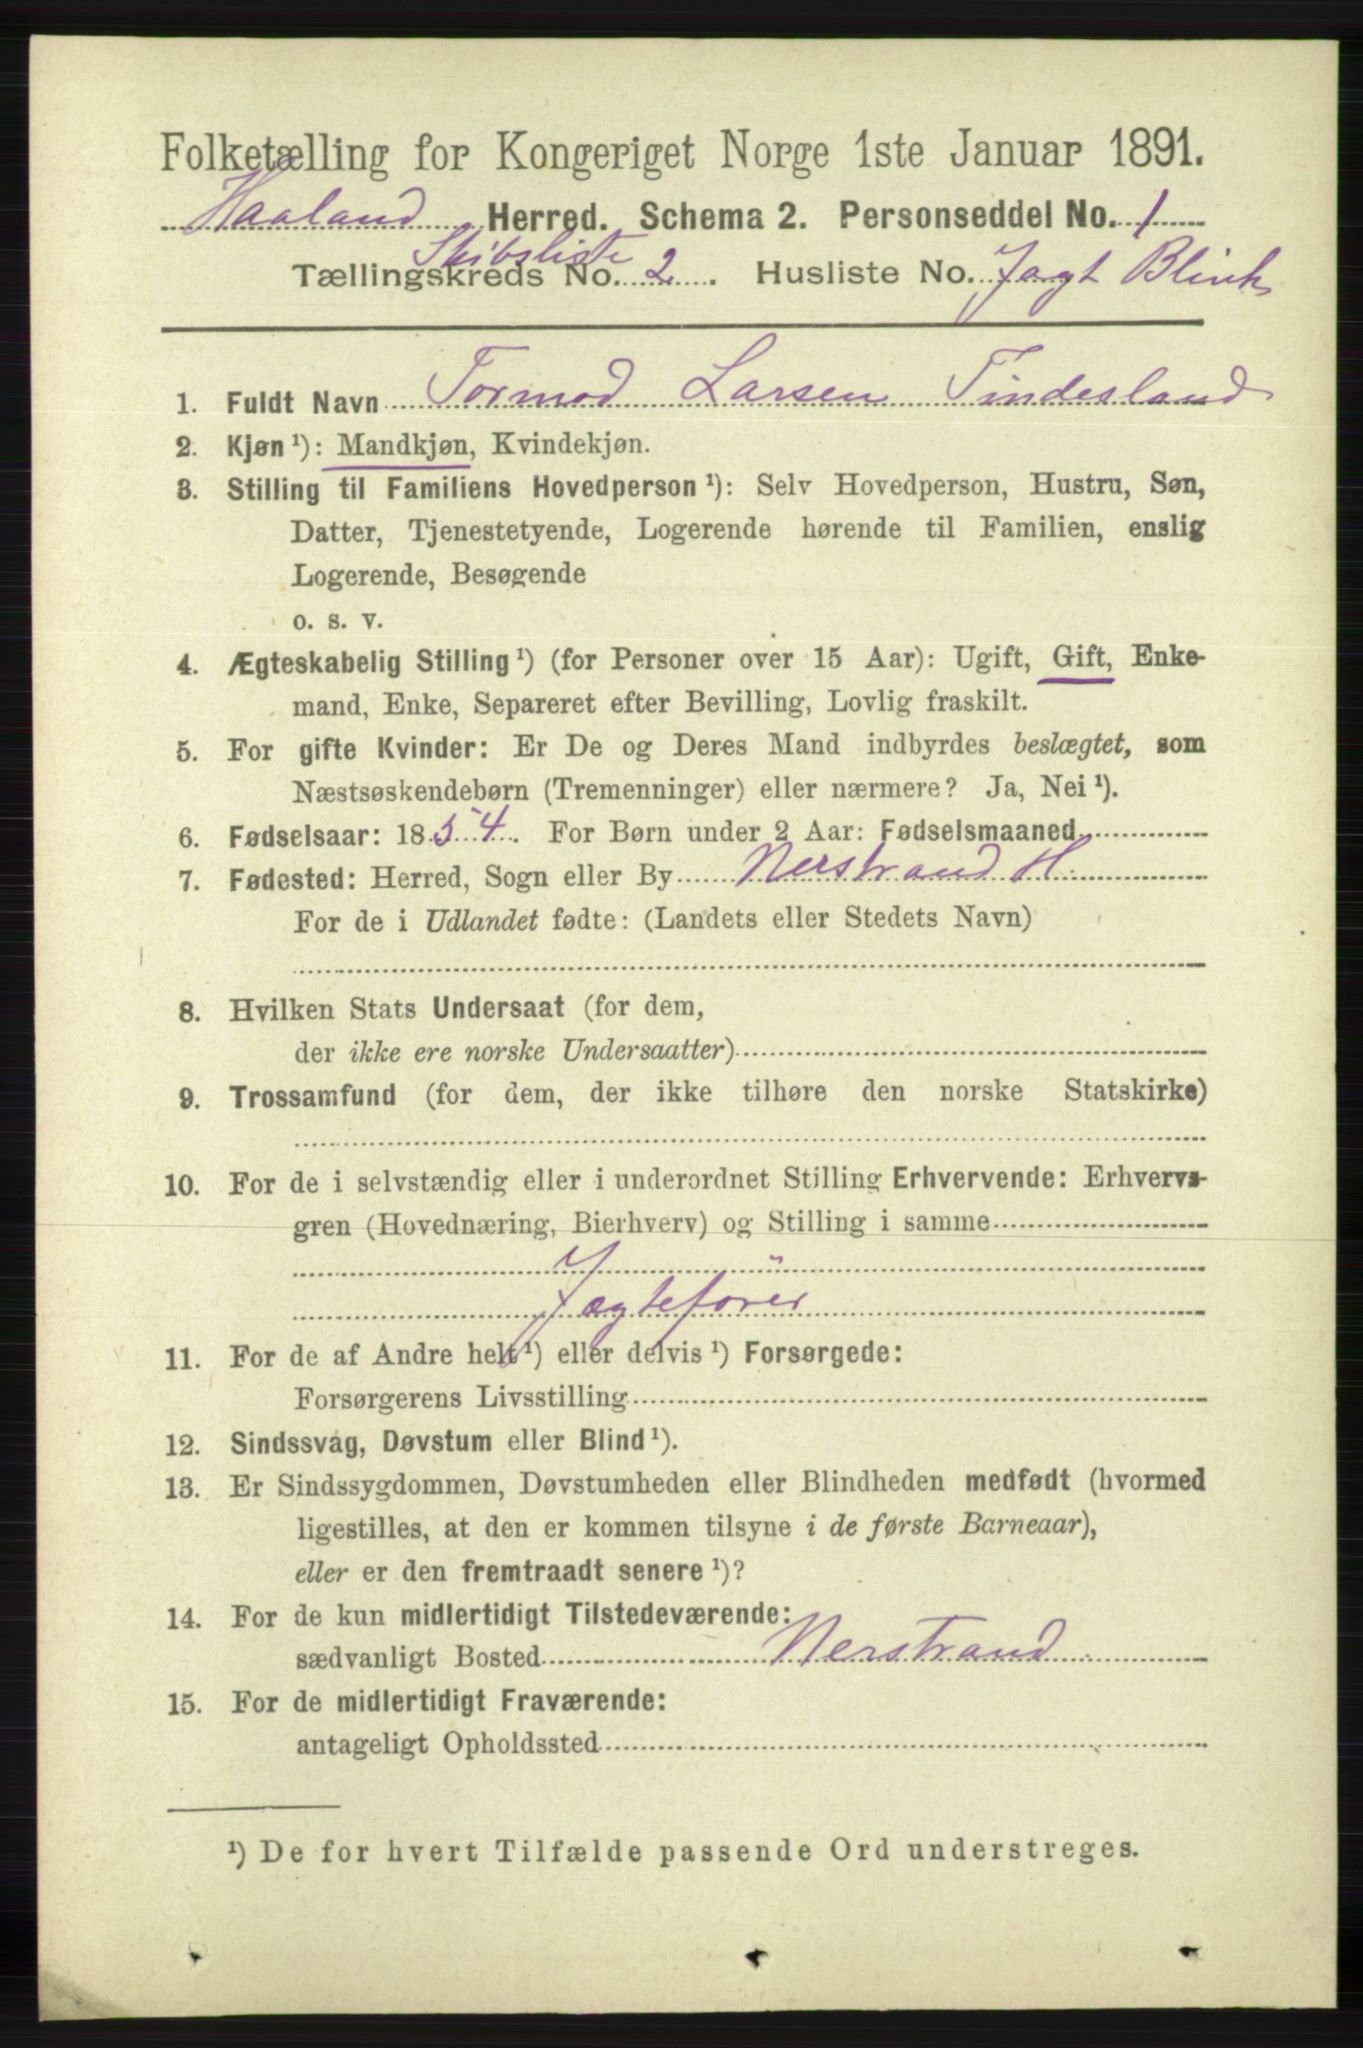 Folketælling for Kongeriget Norge 1ste Januar 1891.
Haaland Herred. Schema 2. Personseddel No. 1
Skibsliste
Tællingskreds No. 2. Husliste No. Jagt Blink
1. Fuldt Navn Tormod Larsen Tindesland
2. Kjøn ¹): Mandkjøn, Kvindekjøn.
3. Stilling til Familiens Hovedperson ¹): Selv Hovedperson, Hustru, Søn,
Datter, Tjenestetyende, Logerende hørende til Familien, enslig
Logerende, Besøgende
o. s. v.
4. Ægteskabelig Stilling ¹) (for Personer over 15 Aar): Ugift, Gift, Enke-
mand, Enke, Separeret efter Bevilling, Lovlig fraskilt.
5. For gifte Kvinder: Er De og Deres Mand indbyrdes beslægtet, som
Næstsøskendebørn (Tremenninger) eller nærmere? Ja, Nei ¹).
6. Fødselsaar: 1854. For Børn under 2 Aar: Fødselsmaaned
7. Fødested: Herred, Sogn eller By Nerstrand H.
For de i Udlandet fødte: (Landets eller Stedets Navn)
8. Hvilken Stats Undersaat (for dem,
der ikke ere norske Undersaatter)
9. Trossamfund (for dem, der ikke tilhøre den norske Statskirke)
10. For de i selvstændig eller i underordnet Stilling Erhvervende: Erhvervs-
gren (Hovednæring, Bierhverv) og Stilling i samme
Jægtefører
11. For de af Andre helt ¹) eller delvis ¹) Forsørgede:
Forsørgerens Livsstilling
12. Sindssvag, Døvstum eller Blind ¹).
13. Er Sindssygdommen, Døvstumheden eller Blindheden medfødt (hvormed
ligestilles, at den er kommen tilsyne i de første Barneaar),
eller er den fremtraadt senere ¹)?
14. For de kun midlertidigt Tilstedeværende:
sædvanligt Bosted Nerstrand
15. For de midlertidigt Fraværende:
antageligt Opholdssted
¹) De for hvert Tilfælde passende Ord understreges.